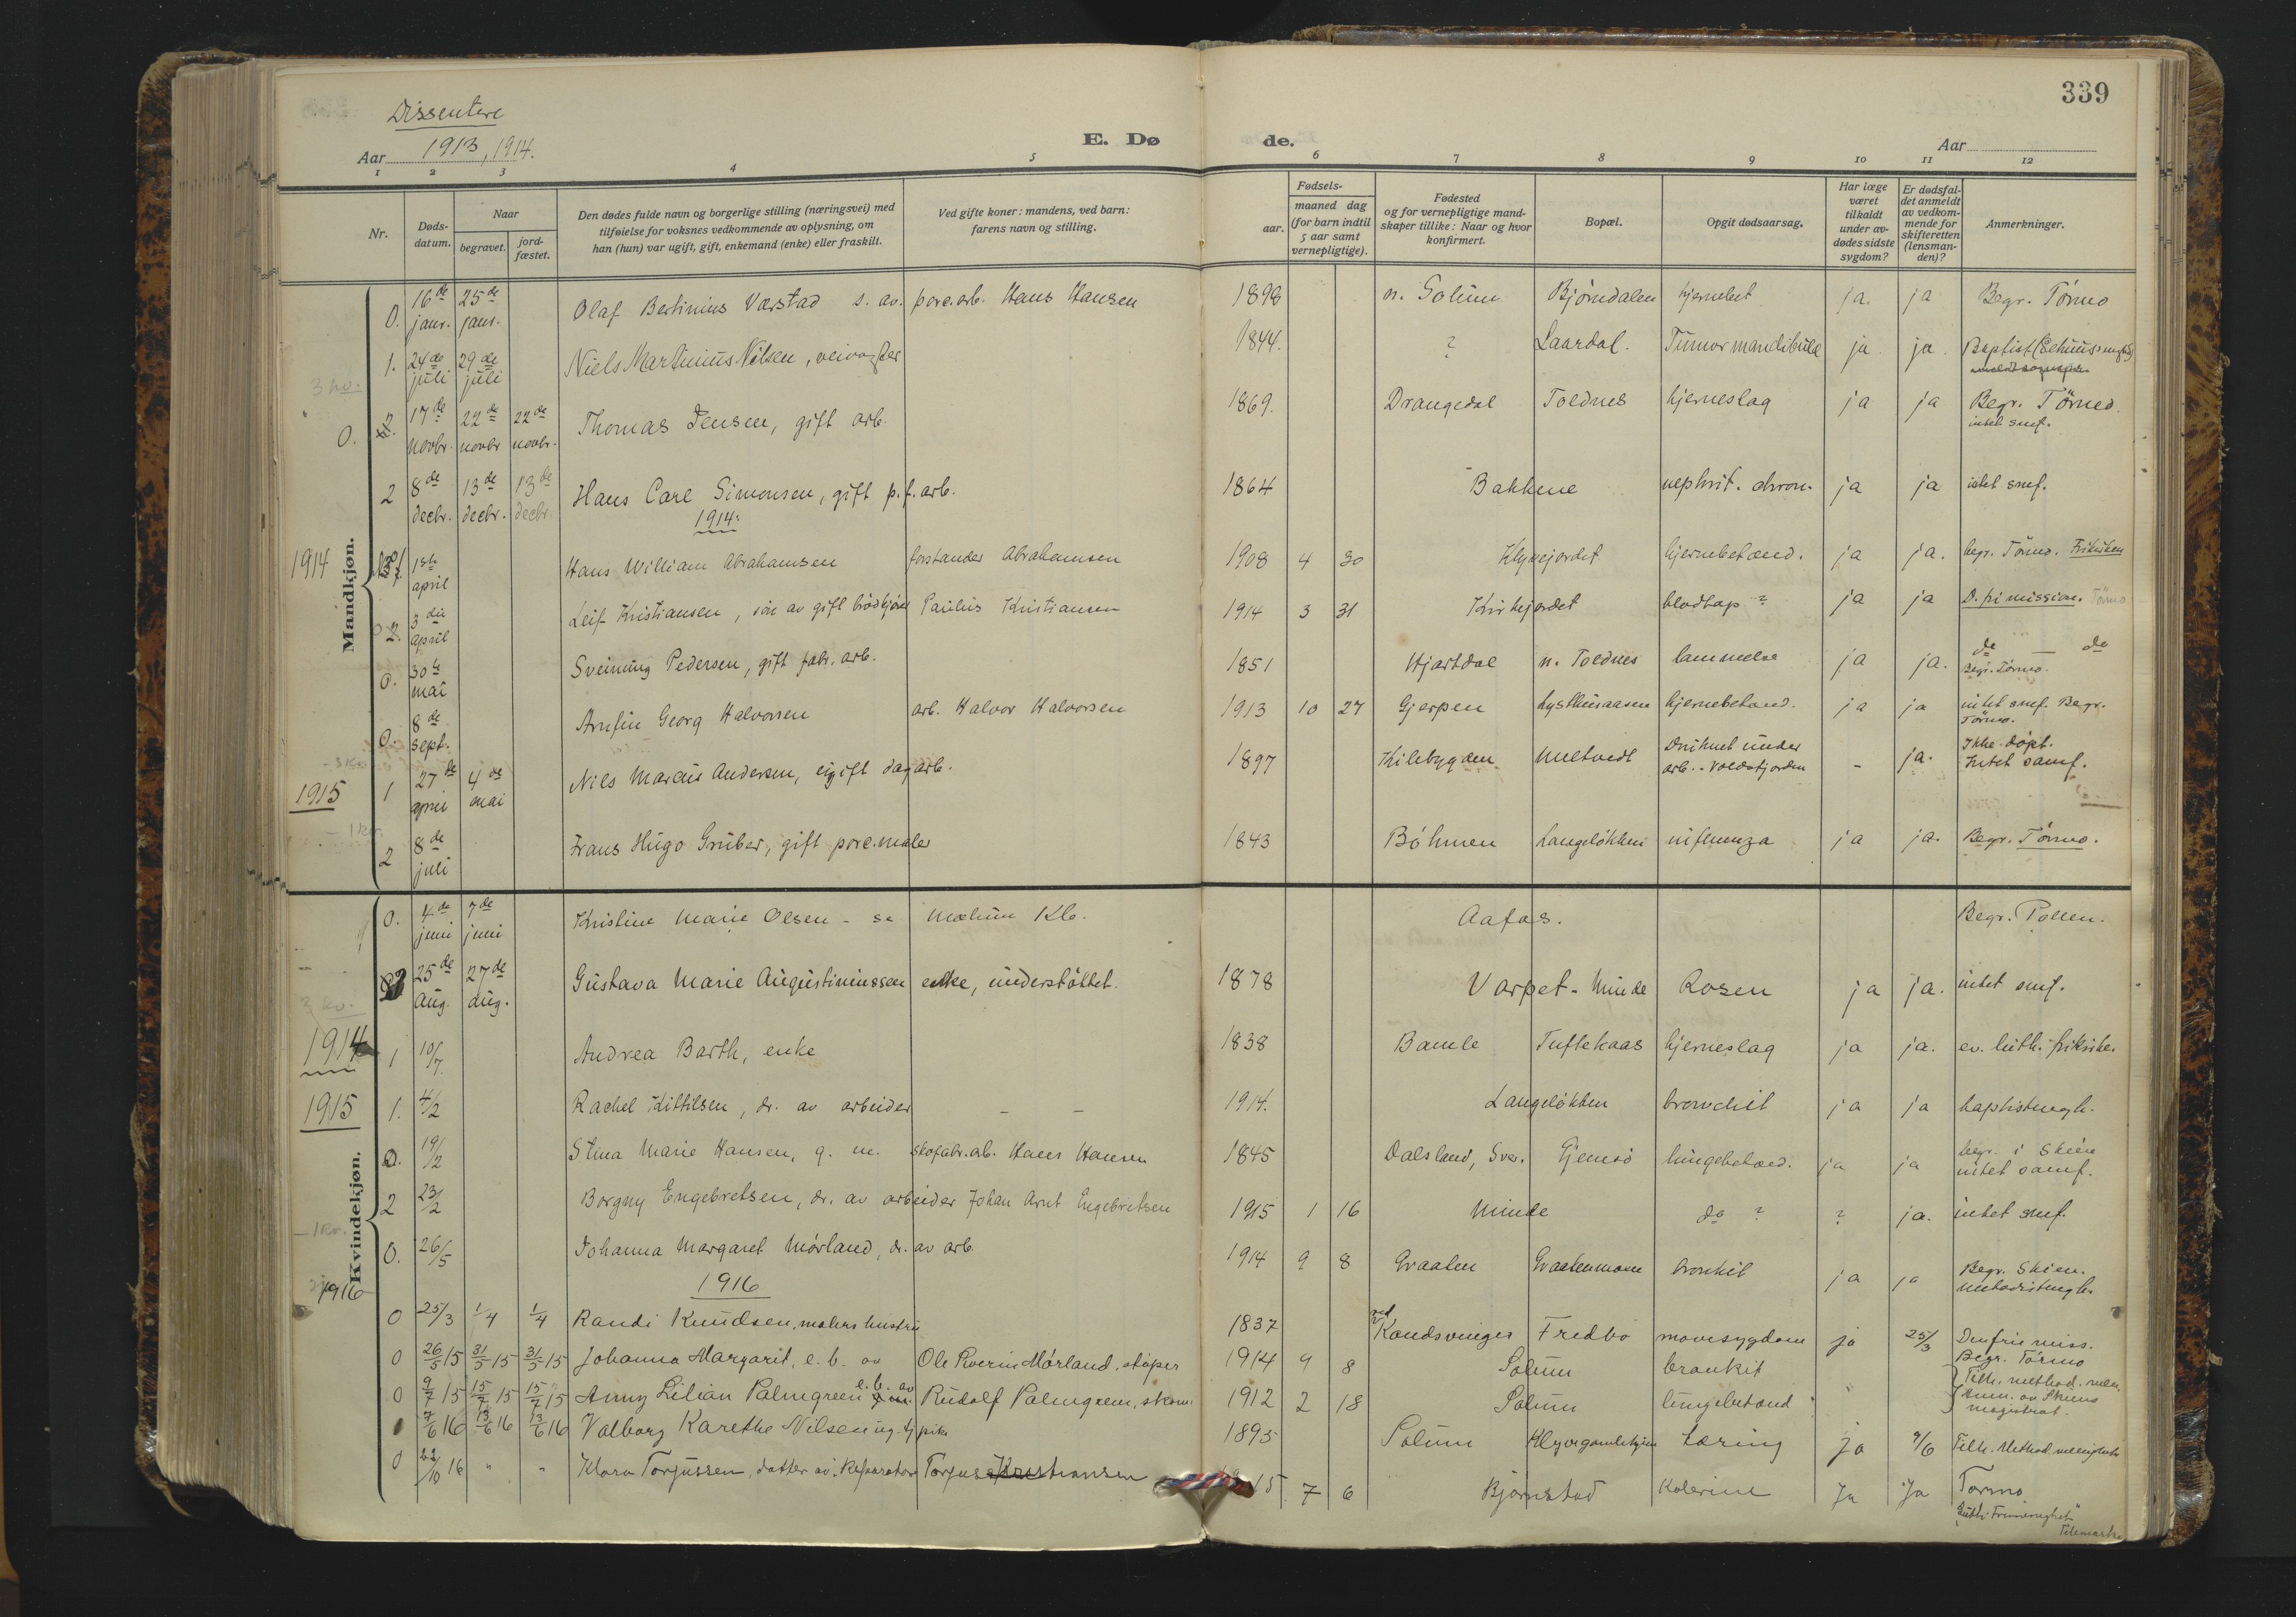 339
Dissentere
E. Dø de.
Aar 1913, 1914. Aar
1 2 3 4 5 6 7 8 9 10 11 12
Nr.
Døds-
datum.
Naar
begravet.
jord-
fæstet.
Den dødes fulde navn og borgerlige stilling (næringsvei) med
tilføielse for voksnes vedkommende av oplysning, om
han (hun) var ugift, gift, enkemand (enke) eller fraskilt.
Ved gifte koner: mandens, ved barn:
farens navn og stilling.
Fødsels-
aar.
maaned dag
(for barn indtil
5 aar samt
vernepligtige).
Fødested
og for vernepligtige mand-
skaper tillike: Naar og hvor
konfirmert.
Bopæl.
Opgit dødsaarsag.
Har læge
været
tilkaldt
under av-
dødes sidste
sygdom?
Er dødsfal-
det anmeldt
av vedkom-
mende for
skifteretten
(lensman-
den)?
Anmerkninger.
Mandkjøn.
0. 16de janr. 25de janr. Olaf Bertinius Værstad s. av. porc.arb. Hans Hansen 1898 n. Solum Bjørndalen hjernebet ja. ja Begr. Tórmo
1. 24de juli 29de juli Niels Martinius Nilsen, veivogter 1844. ? Laardal. Tumor mandibula ja ja. Baptist
0. 17de novbr. 22de novbr 22de novbr. Thomas Jensen, gift arb. 1869. Drangedal Toldnes hjerneslag ja ja Begr. Törmo.
intet smf.
2 8de decbr. 13de decbr. 13de decbr. Hans Carl Simonsen, gift p.f. arb. 1864 Bakkene nephrit. chron. ja ja intet smf.
1914.
1914 1ste april Hans William Abrahamsen forstander Abrahamsen 1908 4 30 Klyvejordet hjernebetænd. ja ja. begr. Törmo. Frikirken
2. 3die april Leif Kristiansen, søn av gift brödkjører Paulus Kristiansen 1914 3 31 Kirkejordet blodtap ? ja ja D. fri mission. Törmo
0. 30te mai Sveinung Pedersen, gift fabr. arb. 1851 Hjartdal n. Toldnes lammelse ja ja. do — do
Begr. Törmo.
0. 8de sept. Arnfin Georg Halvorsen arb. Halvor Halvorsen 1913 10 27 Gjerpen Lysthusaasen hjernebetænd. ja ja intet smf. Begr.
Törmo.
1915 1 27de april 4de mai Nils Marcus Andersen, ugift dagarb. 1897 Kilebygden Meltvedt Druknet under
arb. Voldsfjorden - ja. Ikke döpt.
Intet samf.
2 8de juli Frans Hugo Gruber, gift porc.maler 1843 Böhmen Langeløkken influenza ja ja. Begr. Törmo.
Kvindekjøn.
0. 4de juni 7de juni Kristine Marie Olsen - se Mælum Kb. Aafos. Begr. Pollen.
25de aug. 27de aug. Gustava Marie Augustinussen enke, understøttet. 1878 Varpet - Minde Rosen ja ja. intet smf.
1914 1 10/7. Andrea Barth, enke 1838 Bamle Tuftekaas hjerneslag ja ja. ev. luth. frikirke.
1915 1. 4/2 Rachel Kittilsen, dr. av arbeider - - 1914. Langeløkken bronchit ja ja baptistmgh.
0. 19/2 Stina Marie Hansen, g. m. skofabr.arb. Hans Hansen 1845 Dalsland, Sver. Gjemsö lungebetænd. ja ja begr. i Skien
intet samf.
2 23/2 Borgny Engebretsen, dr. av arbeider Johan Arnt Engebretsen 1915 1 16 Minde do ? ? ja. intet smf.
0. 26/5 Johanna Margaret Mörland, dr. av arb. 1914 9 8 Graaten Graatenmoen bronkit ja ja Begr. Skien.
Metodistmgh.
1916
1916 0 25/3 1/4 1/4 Randi Knudsen, malers hustru 1837 ved Kongsvinger Fredbo mavesygdom ja 25/3 Den frie miss.
Begr. Törmo
0 26/5 15 31/5 15 31/5 15 Johanna Margarit, e. b. av Ole Severin Mórland, støper 1914 9 8 Solum bronkit
0 9/7 15 15/7 15 15/7 15 Anny Lilian Palmgreen e. b. av Rudolf Palmgreen, skom. 1912 2 18 Solum lungebetænd " Tilh. method. men.
Anm. av Skiens
magistrat.
7/6 16 13/6 16 13/6 16 Valborg Karethe Nilsen ug. tj. pike 1895 Solum tæring ja 9/6 Tilh. Method. menighet
0 22/10 16 " " Klara Torjussen, datter av. Reparatør Torjus Kristiansen 1915 7 6 Bjørnstad Kolerine Ja Ja Tormo
"Luth. Frimenighet"
Telemarken